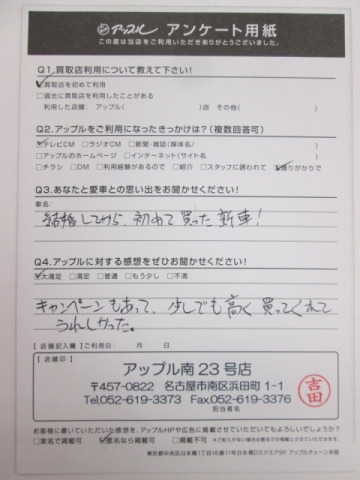 アップル アンケート用紙
この度は当店をご利用いただきありがとうございました。
Q1.買取店利用について教えて下さい!
☑買取店を初めて利用
□過去に買取店を利用したことがある
利用した店舗: アップル( )店 その他( )
Q2.アップルをご利用になったきっかけは?(複数回答可)
☑テレビCM □ラジオCM □新聞・雑誌(媒体名/ )
□アップルのホームページ □インターネット(サイト名 )
□チラシ □DM □利用経験があるので □紹介 □スタッフに誘われて ☑通りがかりで
Q3.あなたと愛車との思い出をお聞かせください!
車名:
結婚してから、初めて買った新車!
Q4.アップルに対する感想をぜひお聞かせください!
☑大満足 □満足 □普通 □もう少し □不満
キャンペーンもあって、少しでも高く買ってくれて
うれしかった。
【店舗記入欄】ご利用日: 月 日
【店舗印】
アップル南23号店
〒457-0822 名古屋市南区浜田町1-1
Tel.052-619-3373 Fax.052-619-3376
担当者名
吉田
お客様に書いていただいた感想を、アップルHPや広告に掲載させていただいてもよろしいでしょうか?
□実名で掲載可 ☑匿名なら掲載可 □掲載不可 ※ご記入がない場合は匿名での掲載とさせていただきます。
東京都中央区日本橋1丁目16番11号日本橋Dスクエア5F アップルチェーン本部